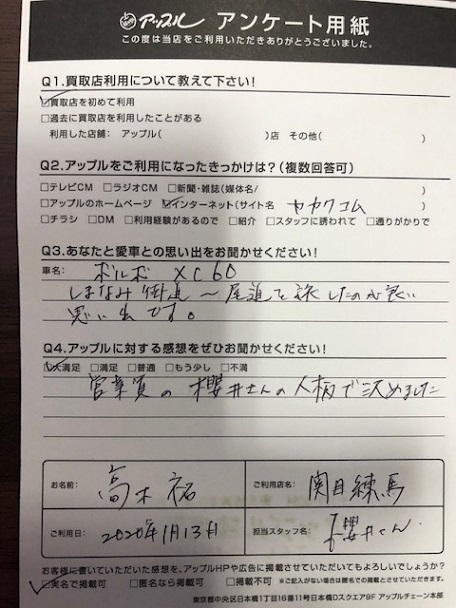 アップル アンケート用紙
この度は当店をご利用いただきありがとうございました。
Q1.買取店利用について教えて下さい!
☑買取店を初めて利用
□過去に買取店を利用したことがある
利用した店舗： アップル( )店 その他( )
Q2.アップルをご利用になったきっかけは?(複数回答可)
□テレビCM □ラジオCM □新聞・雑誌(媒体名/ )
□アップルのホームページ ☑インターネット(サイト名 カカクコム )
□チラシ □DM □利用経験があるので □紹介 □スタッフに誘われて □通りがかりで
Q3.あなたと愛車との思い出をお聞かせください!
車名： ボルボ XC60
しまなみ街道〜尾道を旅したのが良い
思い出です。
Q4.アップルに対する感想をぜひお聞かせください!
☑大満足 □満足 □普通 □もう少し □不満
営業員の櫻井さんの人柄で決めました
お名前： 高木 祐
ご利用店名： 関目練馬
ご利用日： 2020年1月13日
担当スタッフ名： 櫻井さん
お客様に書いていただいた感想を、アップルHPや広告に掲載させていただいてもよろしいでしょうか?
☑実名で掲載可 □匿名なら掲載可 □掲載不可 ※ご記入がない場合は匿名での掲載とさせていただきます。
東京都中央区日本橋1丁目16番11号日本橋Dスクエア9F アップルチェーン本部